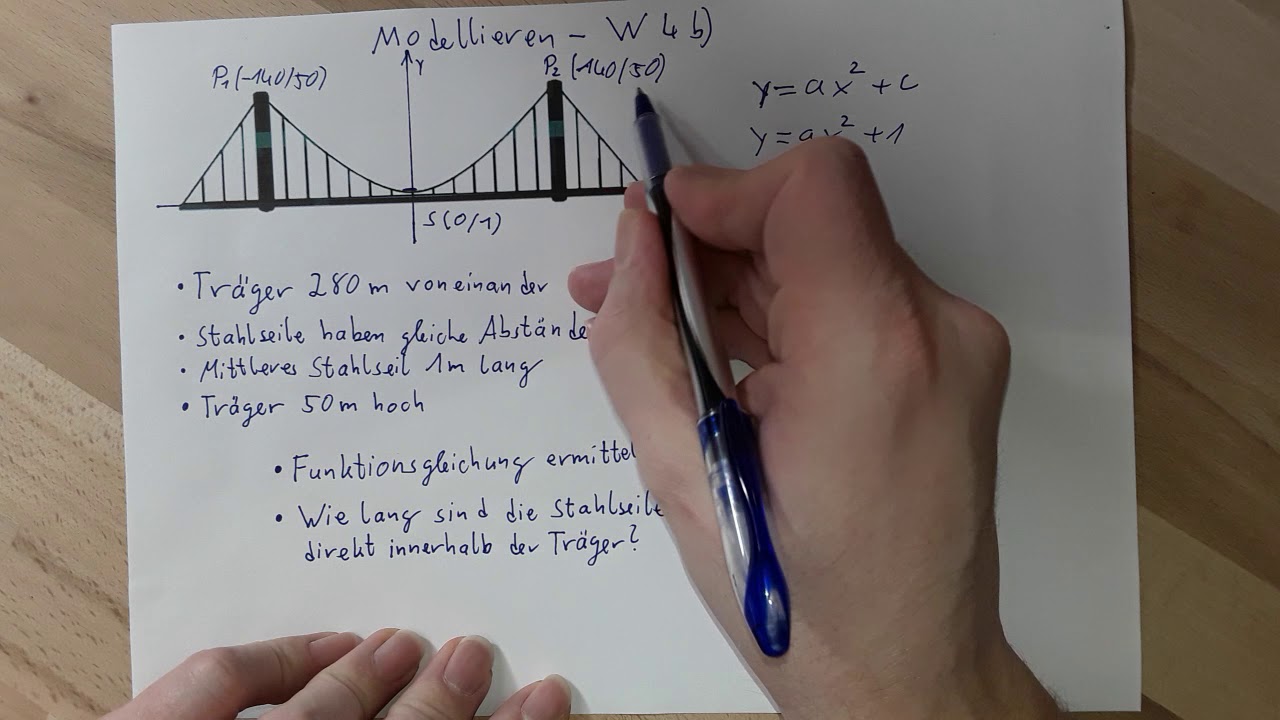 Modellieren - W 4 b)
P₁(-140/50)
y
P₂(140/50)
y = ax² + c
y = ax² + 1
S(0/1)
• Träger 280 m voneinander
• Stahlseile haben gleiche Abstände
• Mittleres Stahlseil 1m lang
• Träger 50m hoch
• Funktionsgleichung ermittel
• Wie lang sind die Stahlseile
direkt innerhalb der Träger?